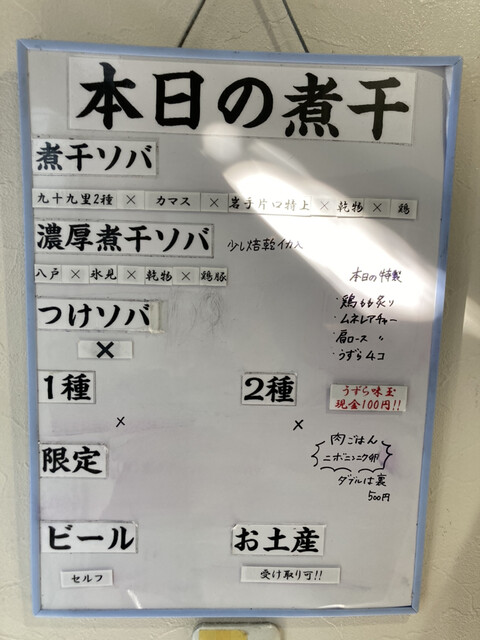 本日の煮干
煮干ソバ
九十九里2種 × カマス × 岩手片口特上 × 乾物 × 鶏
濃厚煮干ソバ 少し焙乾イカ入
八戸 × 氷見 × 乾物 × 鶏豚
本日の特製
・鶏もも炙り
・ムネレアチャー
・肩ロース 〃
・うずら4コ
つけソバ
×
1種
×
2種
×
うずら味玉
現金100円!!
限定
肉ごはん
ニボニンニク卵
ダブルは裏
500円
ビール
セルフ
お土産
受け取り可!!